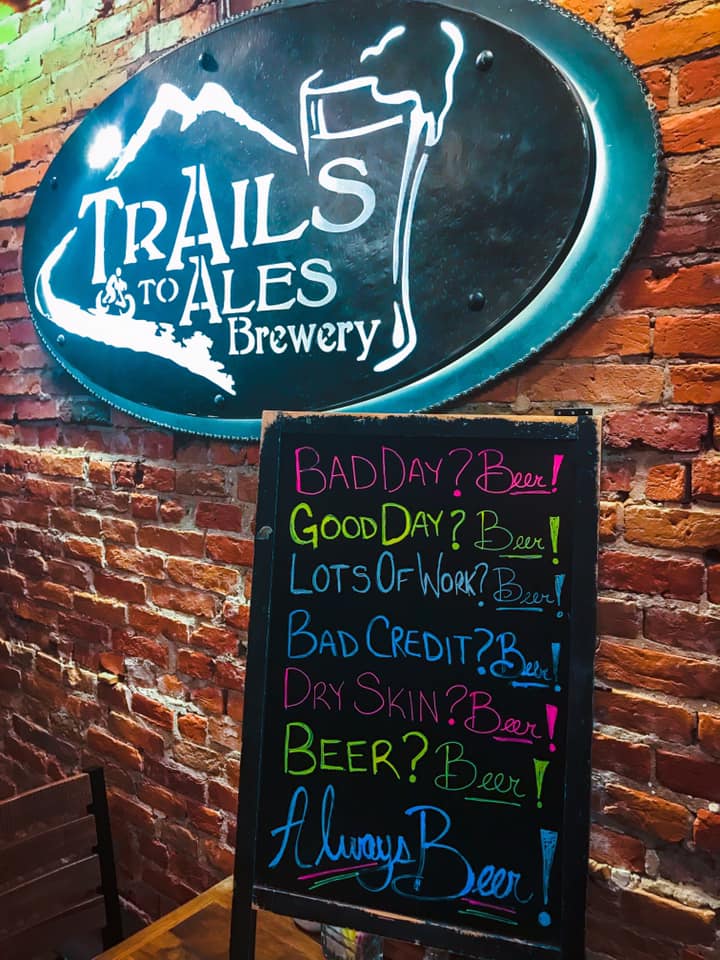 TRAILS
TO ALES
Brewery
BAD DAY? Beer!
GOOD DAY? Beer!
LOTS OF WORK? Beer!
BAD CREDIT? Beer!
DRY SKIN? Beer!
BEER? Beer!
Always Beer!